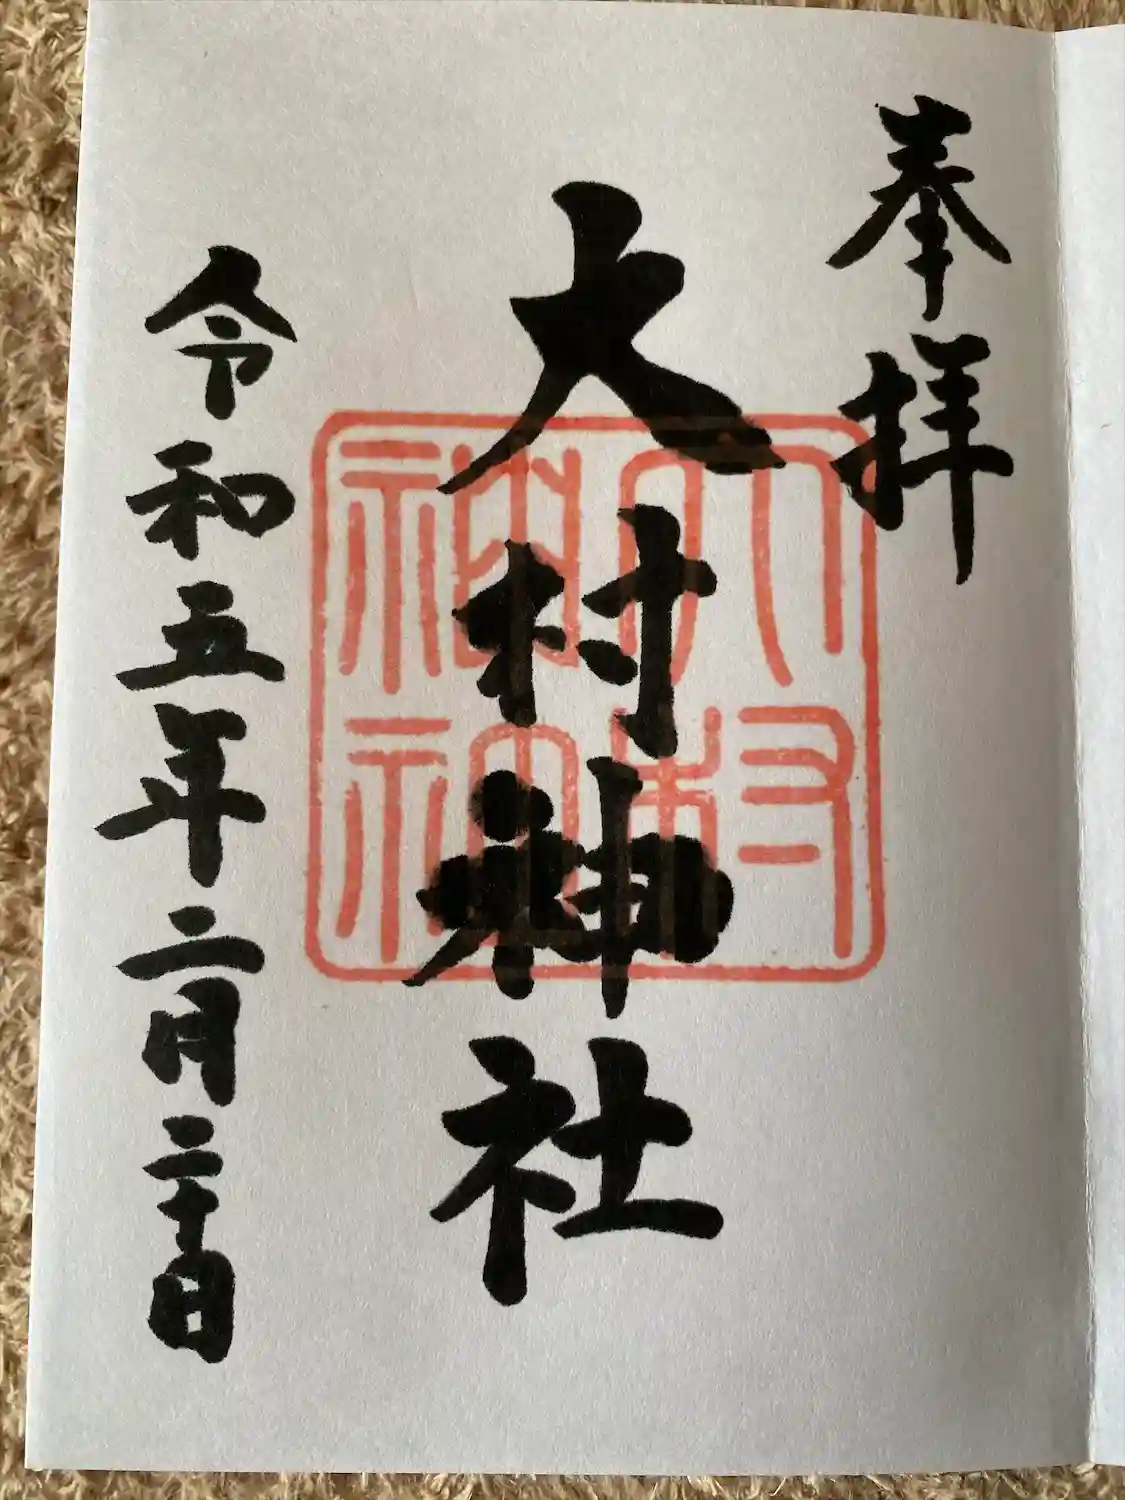 奉拝
大村神社
大村神社
令和五年二月二十日